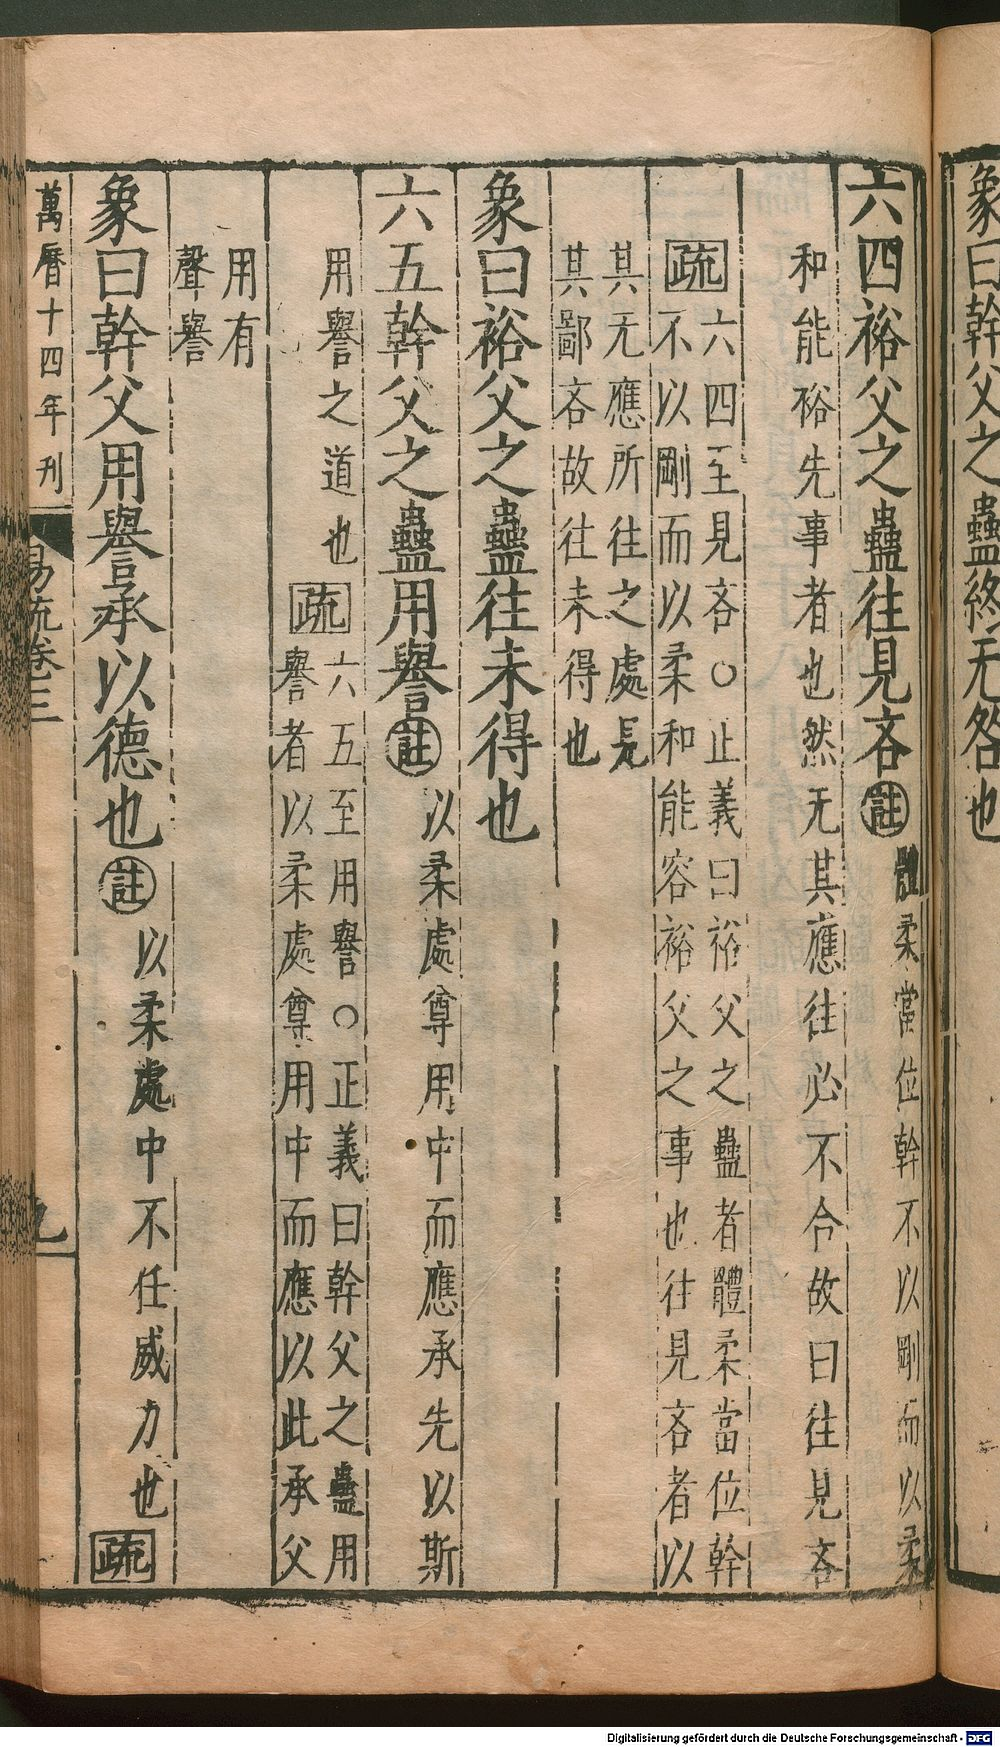 象曰幹父之蠱終无咎也
六四裕父之蠱往見吝註體柔當位幹不以剛而以柔
和能裕先事者也然无其應往必不合故曰往見吝
疏六四至見吝○止義曰裕父之蠱者體柔當位幹
不以剛而以柔和能容裕父之事也往見吝者以
其无應所往之處見
其鄙吝故往未得也
象曰裕父之蠱往未得也
六五幹父之蠱用譽註以柔處尊用中而應承先以斯
用譽之道也疏六五至用譽○正義曰幹父之蠱用
譽者以柔處尊用中而應以此承父
用有
聲譽
象曰幹父用譽承以德也註以柔處中不任威力也疏
萬曆十四年刊
易疏卷三
九
Digitalisierung gefördert durch die Deutsche Forschungsgemeinschaft - DFG